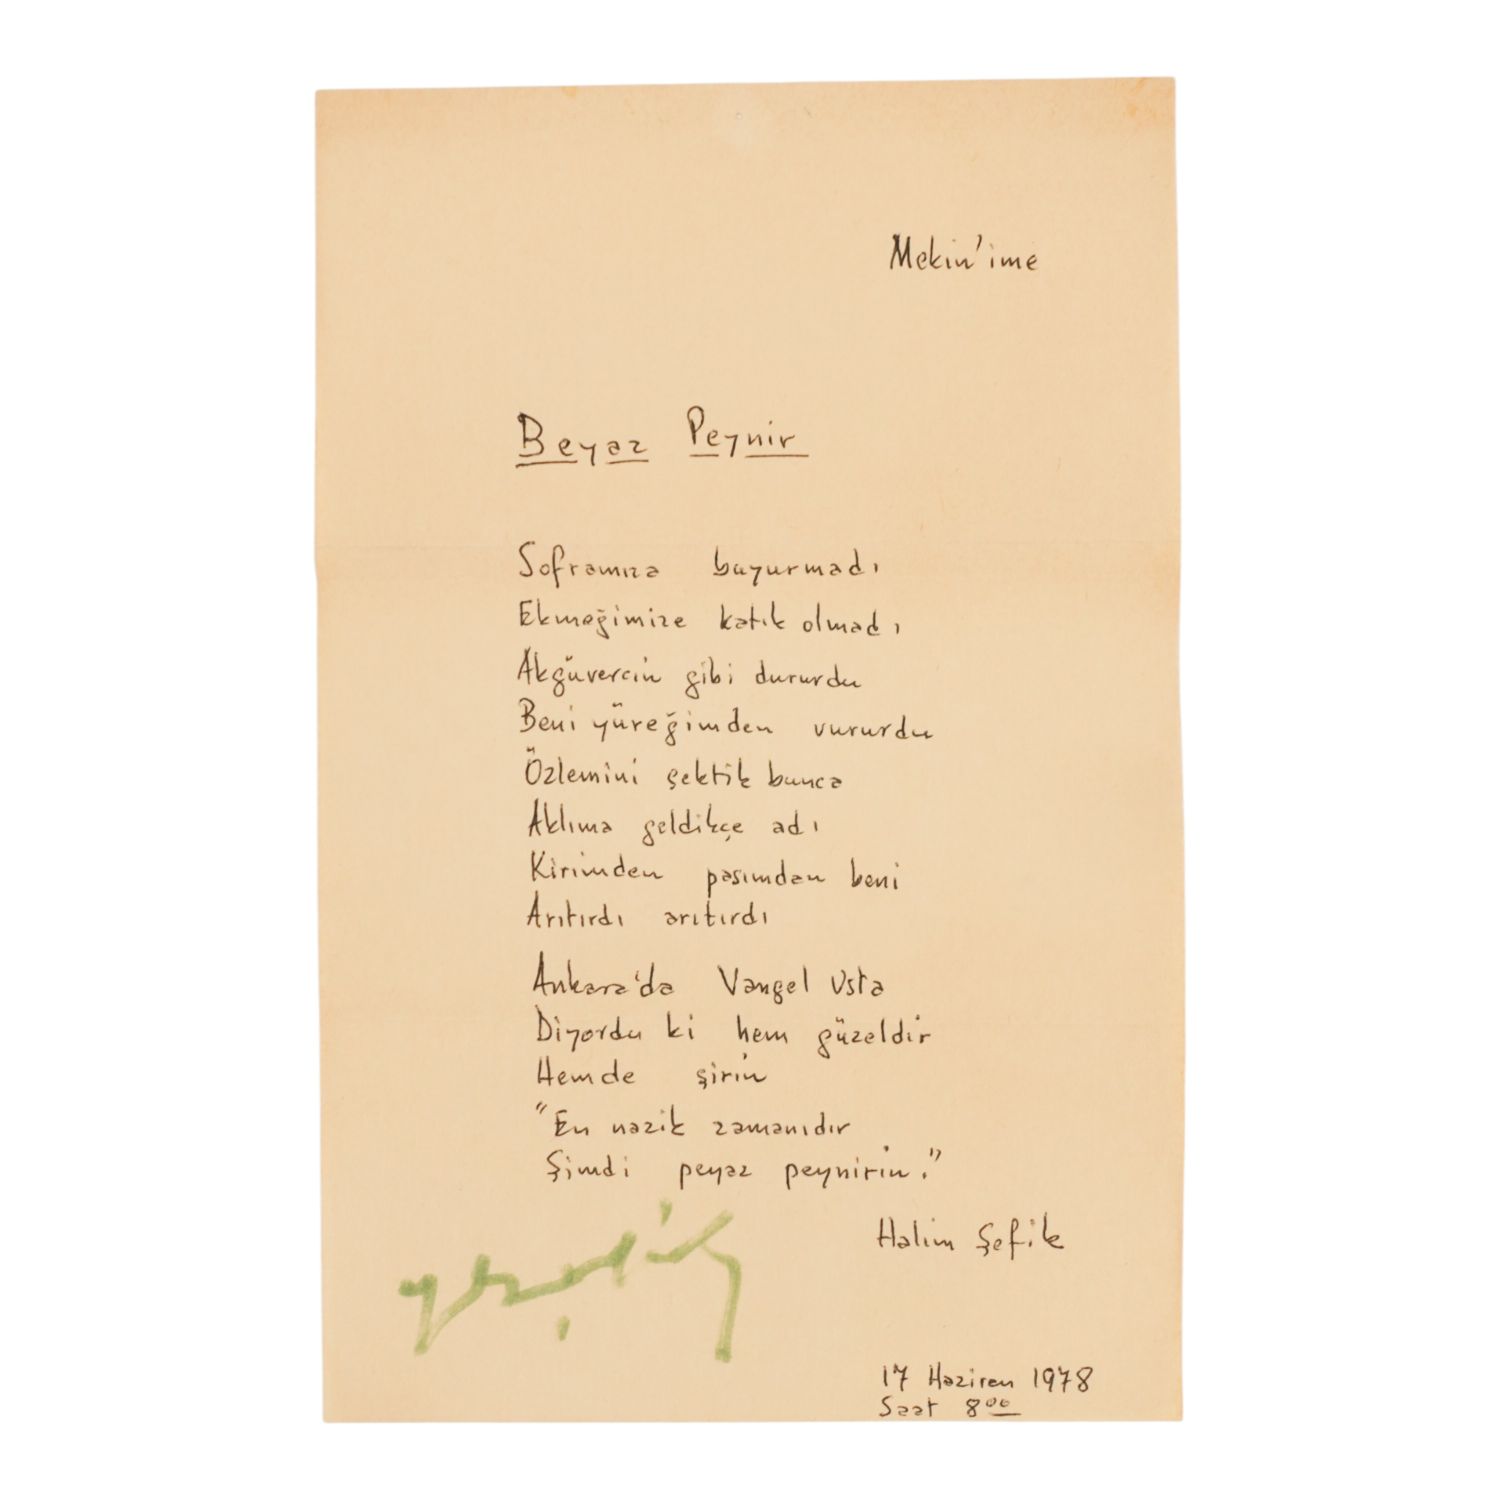 Mekin'ime
Beyaz Peynir
Soframıza buyurmadı
Ekmeğimize katık olmadı
Akgüvercin gibi dururdu
Beni yüreğimden vururdu
Özlemini şektik bunca
Aklıma geldikçe adı
Kirimden pasımdan beni
Arıtırdı arıtırdı
Ankara'da Vangel Usta
Diyordu ki hem güzeldir
Hemde şirin
"En nazik zamanıdır
Şimdi peyaz peynirin."
Halim Şefik
17 Haziren 1978
Saat 8⁰⁰